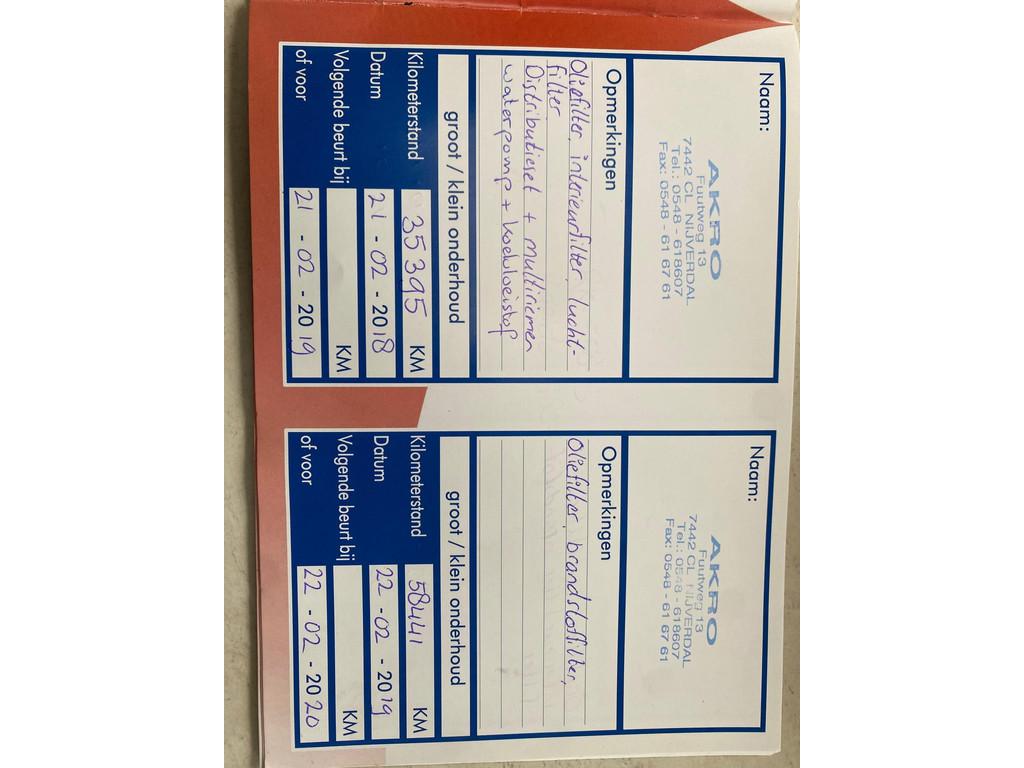 Naam:
AKRO
Fuutweg 13
7442 CL NIJVERDAL
Tel.: 0548 - 618607
Fax: 0548 - 61 67 61
Opmerkingen
Oliefilter, interieurfilter, lucht-
filter
Distributieset + multiriemen
waterpomp + koelvloeistof
groot / klein onderhoud
Kilometerstand 35395 KM
Datum 21-02-2018
Volgende beurt bij KM
of voor 21-02-2019
Naam:
AKRO
Fuutweg 13
7442 CL NIJVERDAL
Tel.: 0548 - 618607
Fax: 0548 - 61 67 61
Opmerkingen
Oliefilter, brandstoffilter,
groot / klein onderhoud
Kilometerstand 58441 KM
Datum 22-02-2019
Volgende beurt bij KM
of voor 22-02-2020